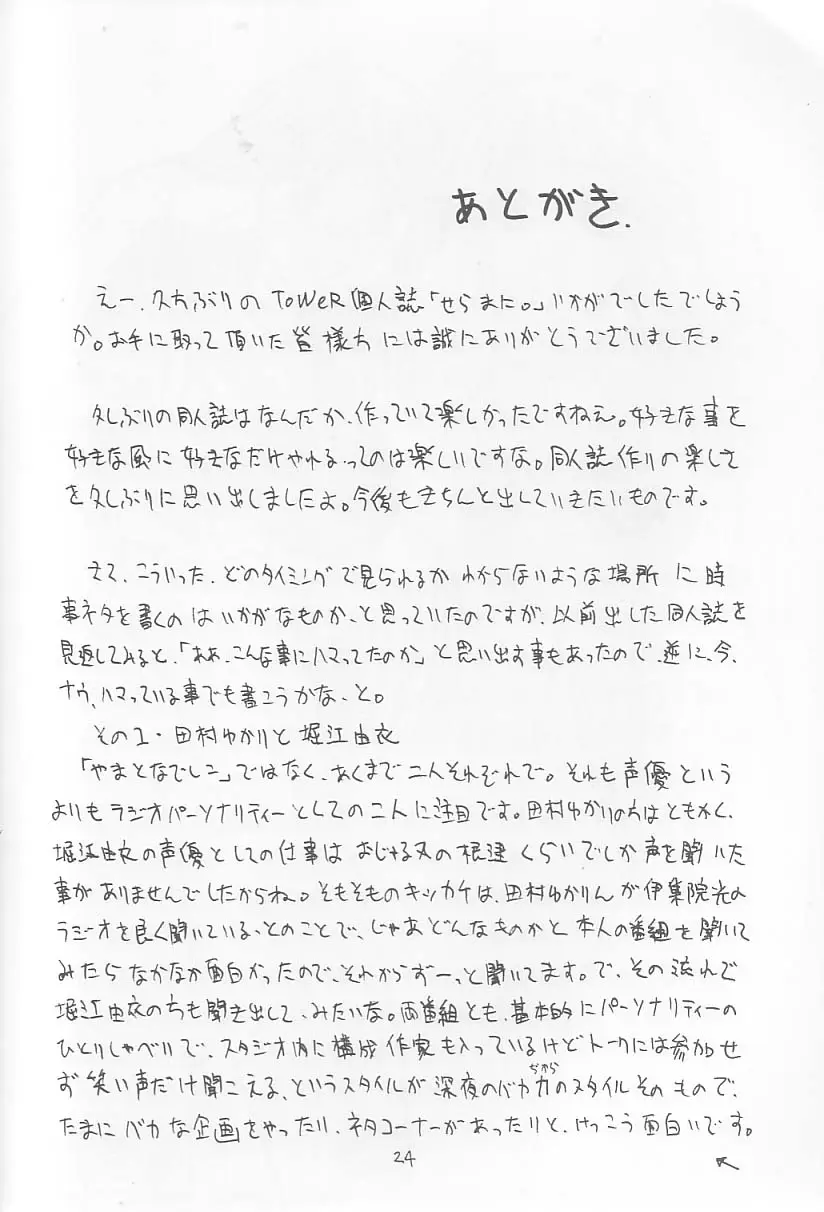 あとがき.
えー、久方ぶりのToWeR個人誌「せらまに。」いかがでしたでしょう
か。お手に取って頂いた皆様方には誠にありがとうございました。
久しぶりの同人誌はなんだか、作っていて楽しかったですねえ。好きな事を
好きな風に好きなだけやれる、ってのは楽しいですな。同人誌作りの楽しさ
を久しぶりに思い出しましたよ。今後もきちんと出していきたいものです。
さて、こういった、どのタイミングで見られるかわからないような場所に時
事ネタを書くのはいかがなものか、と思っていたのですが、以前出した同人誌を
見返してみると、「ああ、こんな事にハマってたのか」と思い出す事もあったので、逆に、今、
ナウ、ハマっている事でも書こうかな、と。
その1・田村ゆかりと堀江由衣
「やまとなでしこ」ではなく、あくまで二人それぞれで。それも声優という
よりもラジオパーソナリティーとしての二人に注目です。田村ゆかりの方はともかく、
堀江由衣の声優としての仕事はおじゃる丸の
くらいでしか声を聞いた
事がありませんでしたからね。そもそものキッカケは、田村ゆかりんが伊集院光の
ラジオを良く聞いている、とのことで、じゃあどんなものかと本人の番組を聞いて
みたらなかなか面白かったので、それからずーっと聞いてます。で、その流れで
堀江由衣の方も聞き出して、みたいな。両番組とも、基本的にパーソナリティーの
ひとりしゃべりで、スタジオ内に構成作家も入っているけどトークには参加せ
ず笑い声だけ聞こえる、というスタイルが深夜のバカ力のスタイルそのもので、
ぢから
たまにバカな企画をやったり、ネタコーナーがあったりと、けっこう面白いです。
24